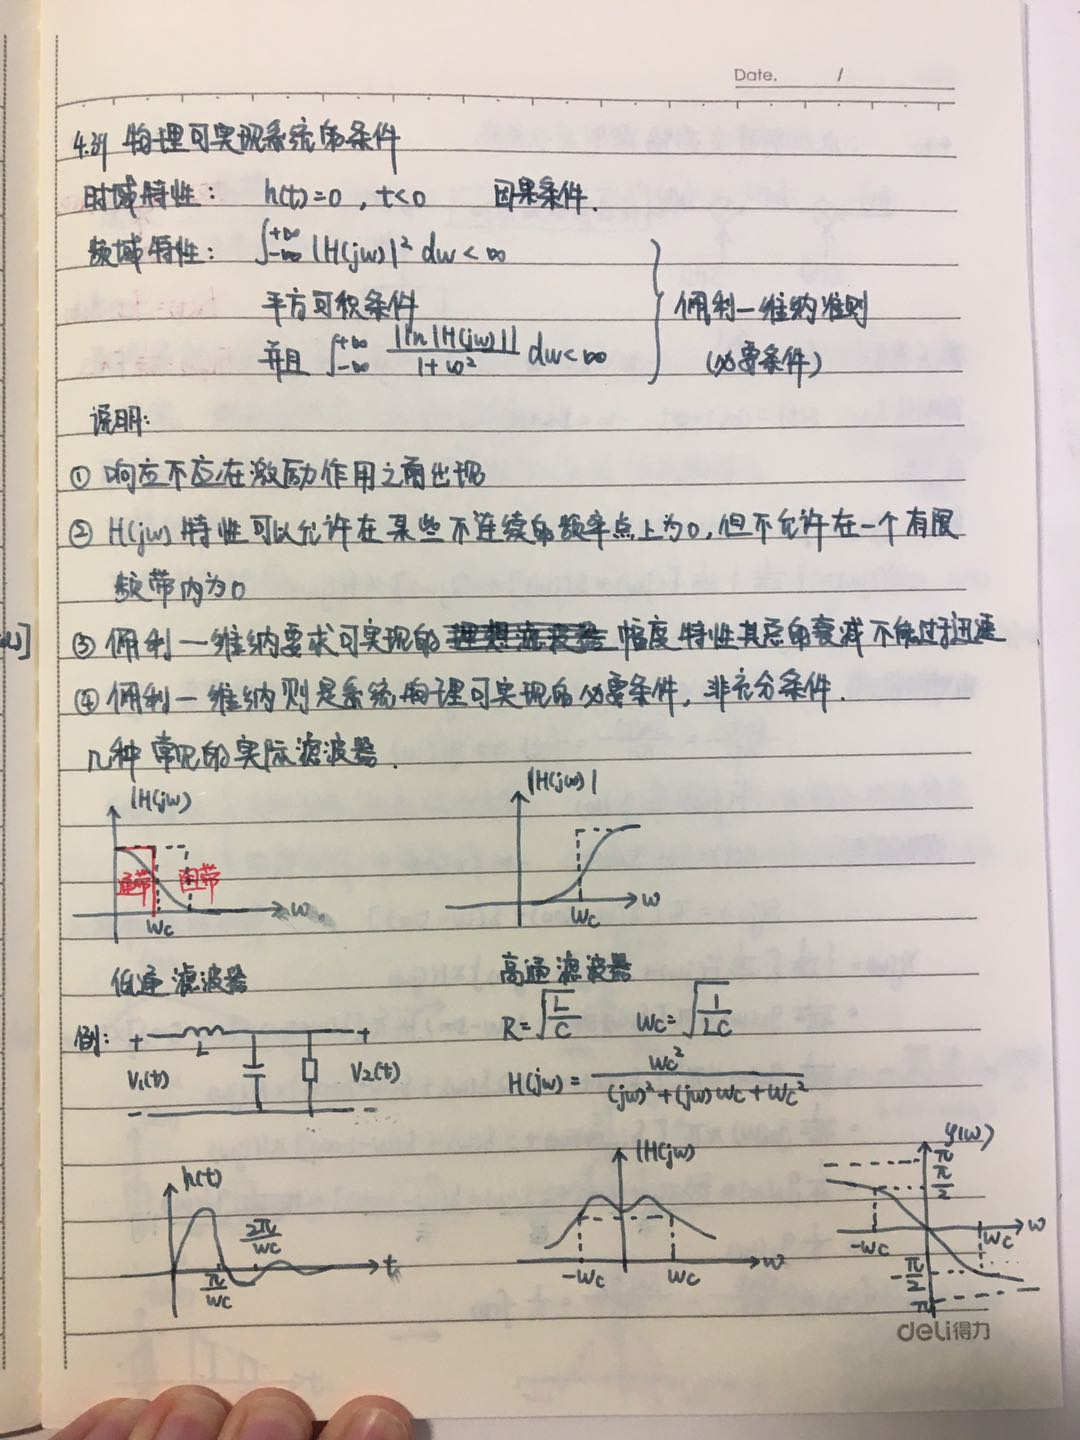 Date. /
4.39 物理可实现系统的条件
时域特性： h(t)=0 , t<0 因果条件.
频域特性： ∫_{-∞}^{+∞} |H(jw)|² dw < ∞
平方可积条件
并且 ∫_{-∞}^{+∞} |ln|H(jw)|| / (1+w²) dw<∞
佩利一维纳准则
(必要条件)
说明：
① 响应不应在激励作用之前出现
② H(jw) 特性可以允许在某些不连续的频率点上为0, 但不允许在一个有限
频带内为0
③ 佩利一维纳要求可实现的 幅度特性其总的衰减不能过于迅速
④ 佩利一维纳则是系统物理可实现的必要条件, 非充分条件.
几种常见的实际滤波器.
|H(jw)
通带 阻带
wc w
|H(jw)|
wc w
低通滤波器 高通滤波器
例: + L +
V₁(t) V₂(t)
R=√(L/C) wc=√(1/LC)
H(jw) = wc² / ((jw)²+(jw)wc+wc²)
h(t)
2π/wc
π/wc
t
|H(jw)
-wc wc w
φ(w)
π
π/2
-wc wc w
-π/2
π
deli得力